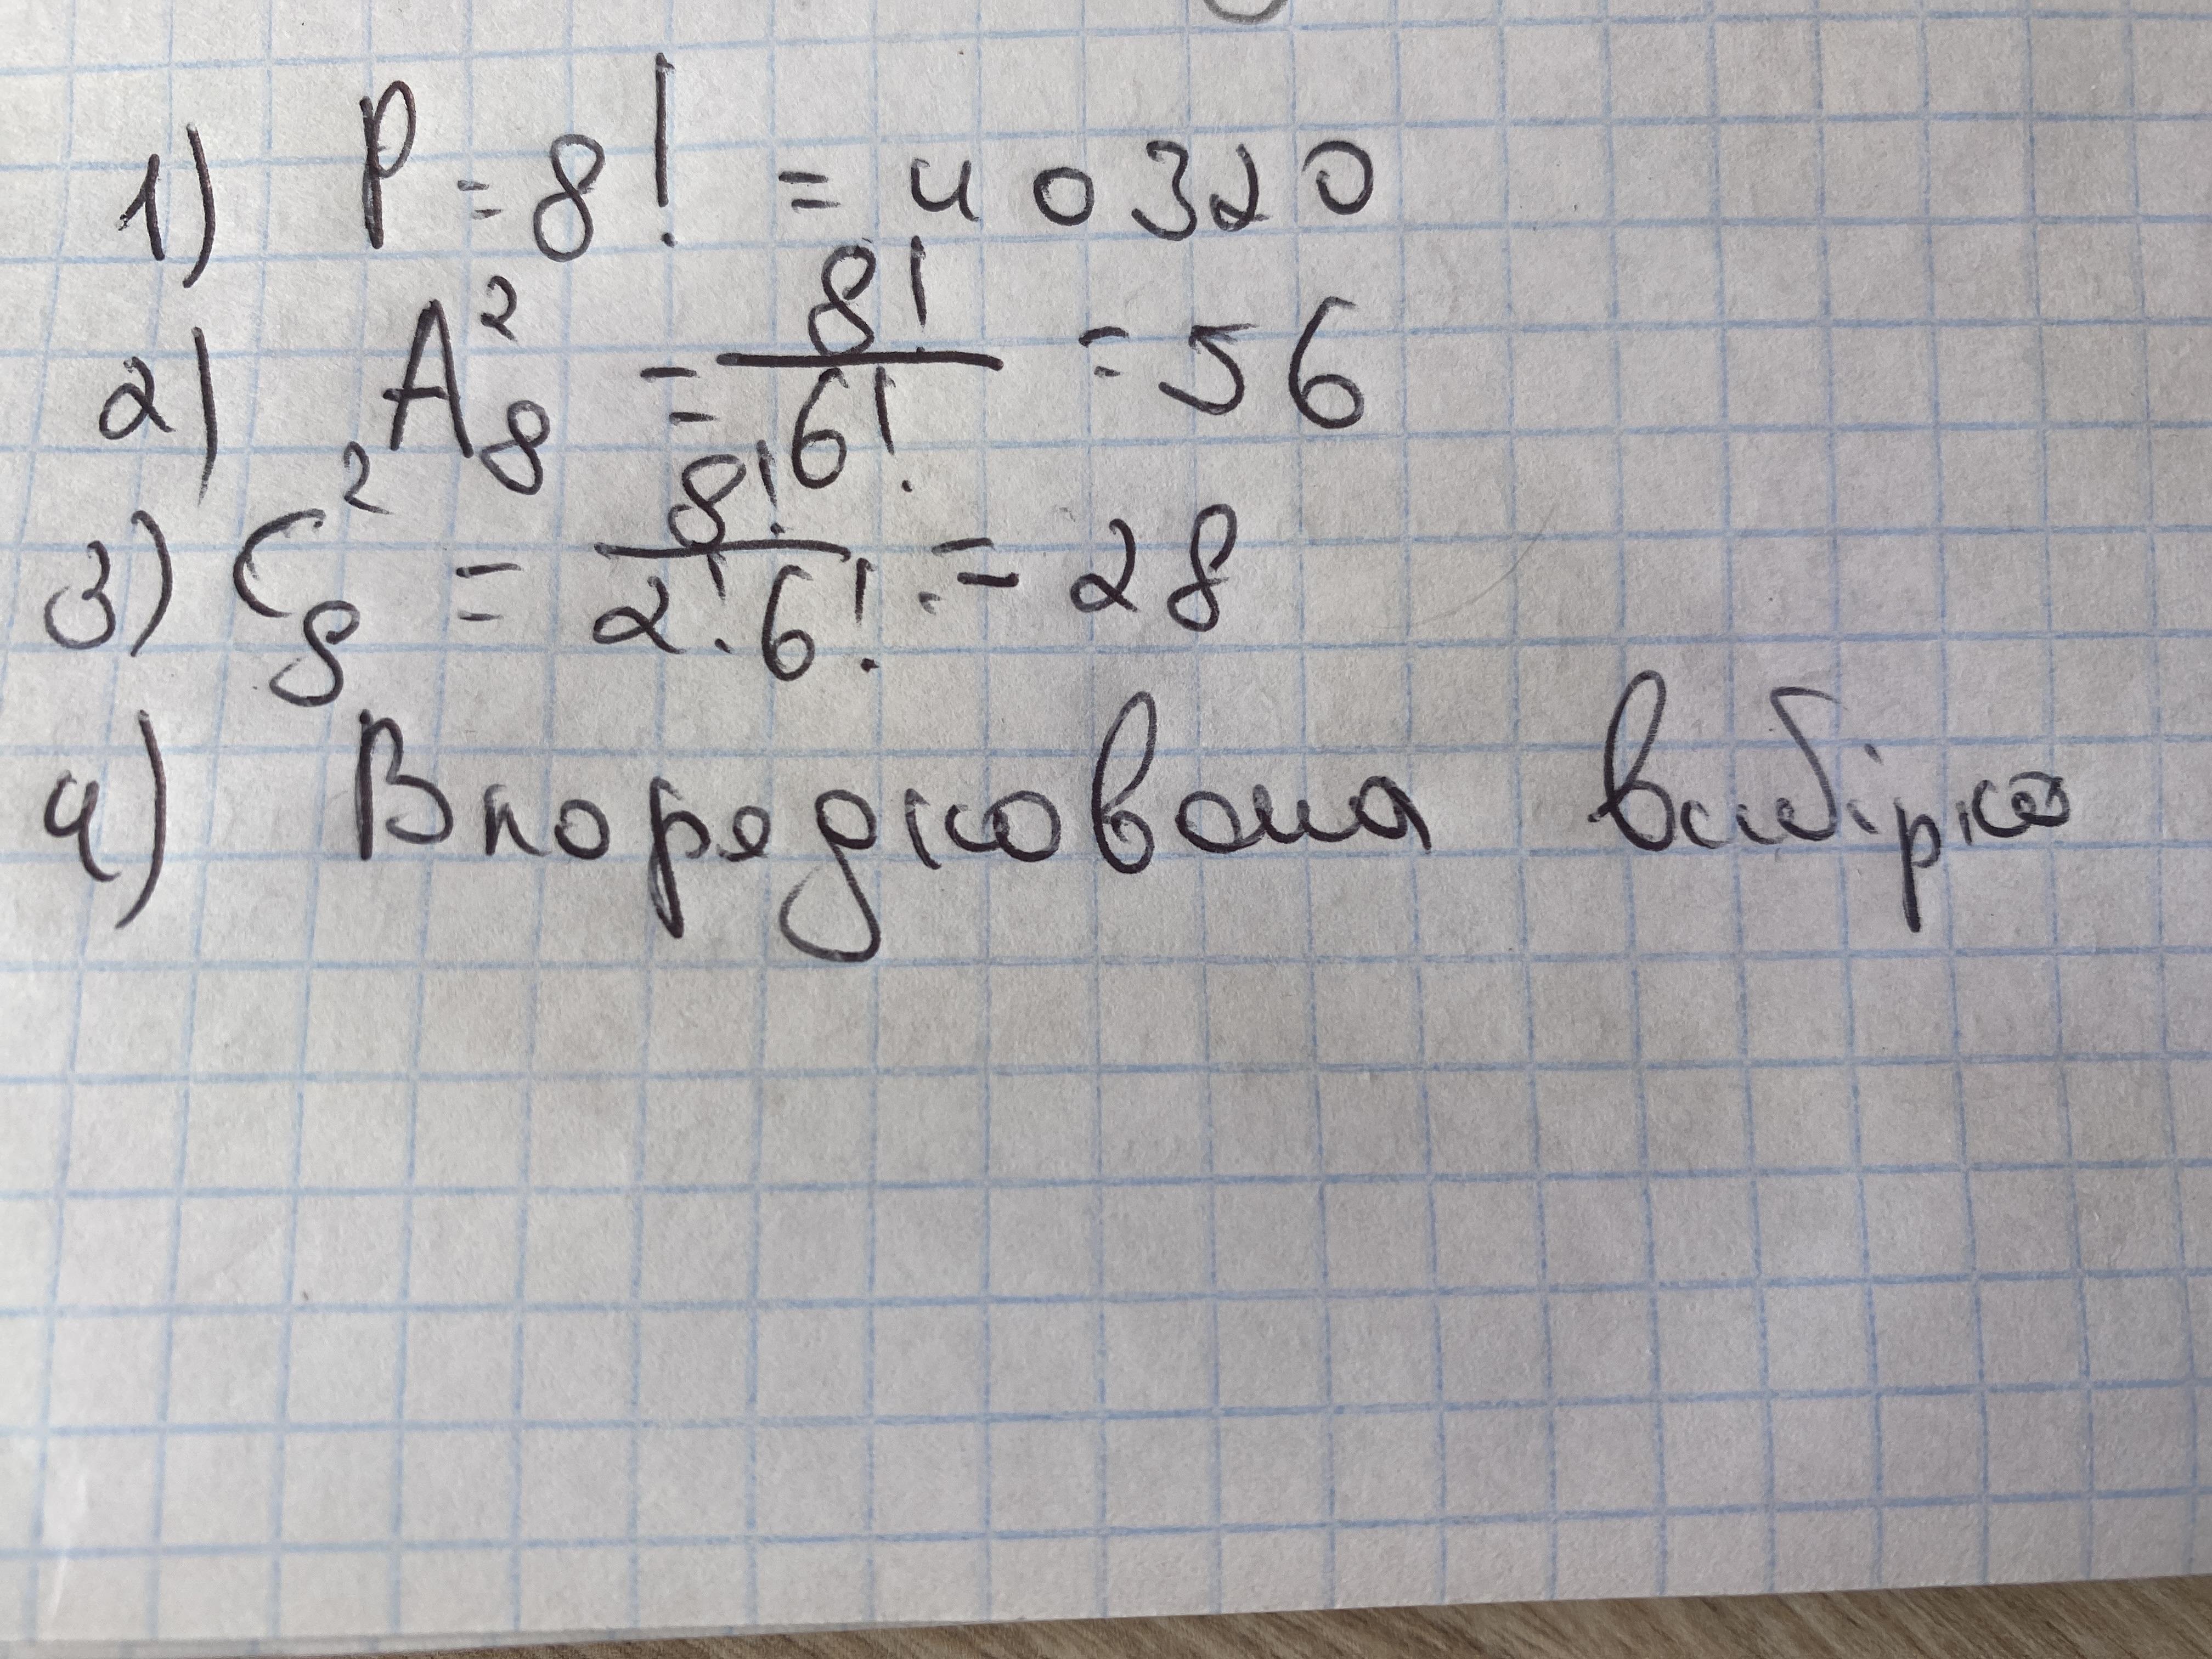 1) P = 8! = 40320
2) A₈² = 8!/6! = 56
3) C₈² = 8!/(2!·6!) = 28
4) Впоредкована вибірка